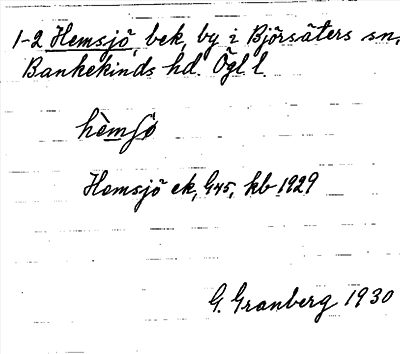 1-2 Hemsjö, bek, by i Björsäters sn,
Bankekinds hd. Ögl l.
hèmʃö
Hemsjö ek, G45, kb 1929
G. Granberg 1930